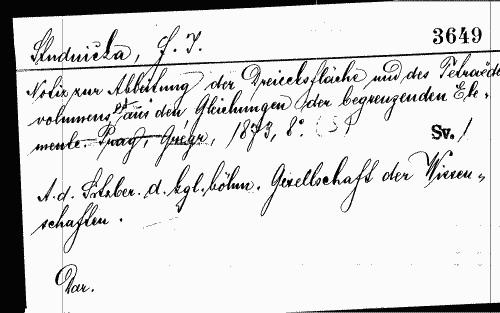 3649
Studnička, F. J.
Notiz zur Ableitung der Dreiecksfläche und des Tetraeder-
volumens aus den Gleichungen der begrenzenden Ele-
mente. Prag, Grégr, 1873, 8°. (S
Sv. 1
A. d. Sitzber. d. kgl. böhm. Gesellschaft der Wissen-
schaften.
Dar.